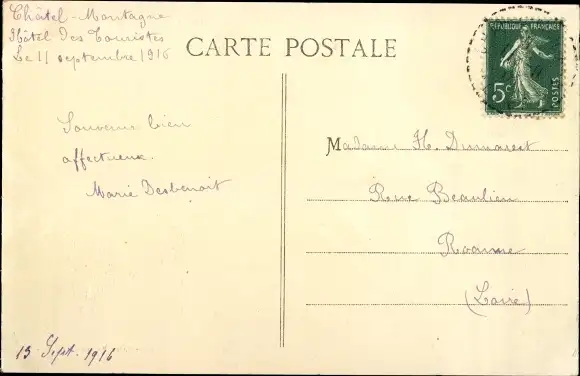 Châtel-Montagne
Hôtel des Touristes
Le 11 septembre 1916
CARTE POSTALE
RÉPUBLIQUE FRANÇAISE
5c
POSTES
Souvenir bien
affectueux.
Marie Desbenoit
Madame H. Dumarest
Rue Beaulieu
Roanne
(Loire)
13 Sept. 1916